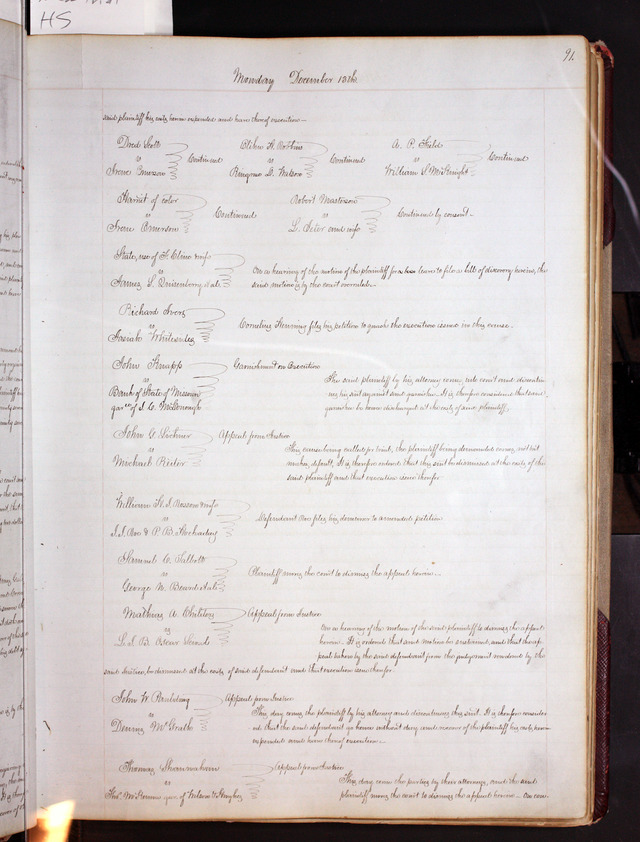 HS
91.
Monday December 13th
said plaintiff his costs herein expended and have thereof execution—
Dred Scott
vs Continued
Irene Emerson
vs Continued
A. P. Field
vs Continued
William S. McKnight
Harriet of color
vs Continued
Irene Emerson
Robert Masterson
vs Continued by consent—
and wife
State, use of and wife
vs On a hearing of the motion of the plaintiff for leave to file a bill of discovery herein, the
James S. et als said motion is by the court overruled—
Richard
vs files his petition to quash the execution issued in this cause.
Josiah Whitesides
John Knapp Garnishment on Execution
vs This said plaintiff by his attorney comes into court and discontin-
Bank of State of Missouri ues his suit against said garnishee. It is therefore considered that said
gar'ee of J. C. McDonough garnishee be hence discharged at the costs of said plaintiff.
John G. Appeal from Justice
vs This cause being called for trial, the plaintiff being demanded comes not but
Michael makes default, It is therefore ordered that this suit be dismissed at the costs of the
said plaintiff and that execution issue therefor
William and wife
vs Defendant files his demurrer to amended petition
& P. B.
Samuel C. Talbott
vs Plaintiff moves the court to dismiss the appeal herein—
George W. et al
Mathias A. Appeal from Justice
vs On a hearing of the motion of the said plaintiff to dismiss the appeal
herein. It is ordered that said motion be sustained, and that the ap-
peal taken by the said defendant from the judgment rendered by the
said Justice, be dismissed at the costs of said defendant and that execution issue therefor.
John W. Paulding Appeal from Justice
vs This day comes the plaintiff by his attorney and discontinues this suit. It is therefore consider-
Dennis McGrath ed that the said defendant go hence without day and recover of the plaintiff his costs herein
expended and have thereof execution—
Thomas Appeal from Justice
vs This day come the parties by their attorneys, and the said
gar'ee of plaintiff moves the court to dismiss the appeal herein— On con-